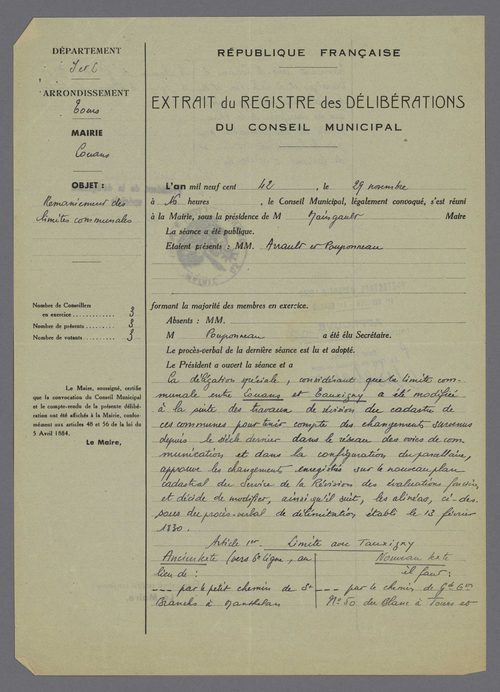 DÉPARTEMENT
I et L
ARRONDISSEMENT
Tours
MAIRIE
Louans
OBJET :
Remaniement des
limites communales
Nombre de Conseillers
en exercice 3
Nombre de présents 3
Nombre de votants 3
Le Maire, soussigné, certifie
que la convocation du Conseil Municipal
et le compte-rendu de la présente délibé-
ration ont été affichés à la Mairie, confor-
mément aux articles 48 et 56 de la loi du
5 Avril 1884.
Le Maire,
RÉPUBLIQUE FRANÇAISE
EXTRAIT du REGISTRE des DÉLIBÉRATIONS
DU CONSEIL MUNICIPAL
L'an mil neuf cent 42 , le 29 novembre
à 16 heures , le Conseil Municipal, légalement convoqué, s'est réuni
à la Mairie, sous la présidence de M Maingault Maire
La séance a été publique.
Etaient présents : MM. Arrault et Pouponneau
formant la majorité des membres en exercice.
Absents : MM.
M Pouponneau a été élu Secrétaire.
Le procès-verbal de la dernière séance est lu et adopté.
Le Président a ouvert la séance et a
la délégation spéciale, considérant que la limite com-
munale entre Louans et Tauxigny a été modifiée
à la suite des travaux de division du cadastre de
ces communes pour tenir compte des changements survenus
depuis le siècle dernier dans le réseau des voies de com
munication et dans la configuration du parcellaire,
approuve les changements enregistrés sur le nouveau plan
cadastral du Service de la Révision des évaluations foncières
et décide de modifier, ainsi qu'il suit, les alinéas, ci-des-
sous du procès-verbal de délimitation établi le 13 février
1830.
Article 1er Limite avec Tauxigny
Ancien texte (vers 6e ligne, au
lieu de :
--- par le petit chemin de St
Branchs à Manthelan
Nouveau texte
il faut :
--- par le chemin de Gde Con
N° 50 du Blanc à Tours et